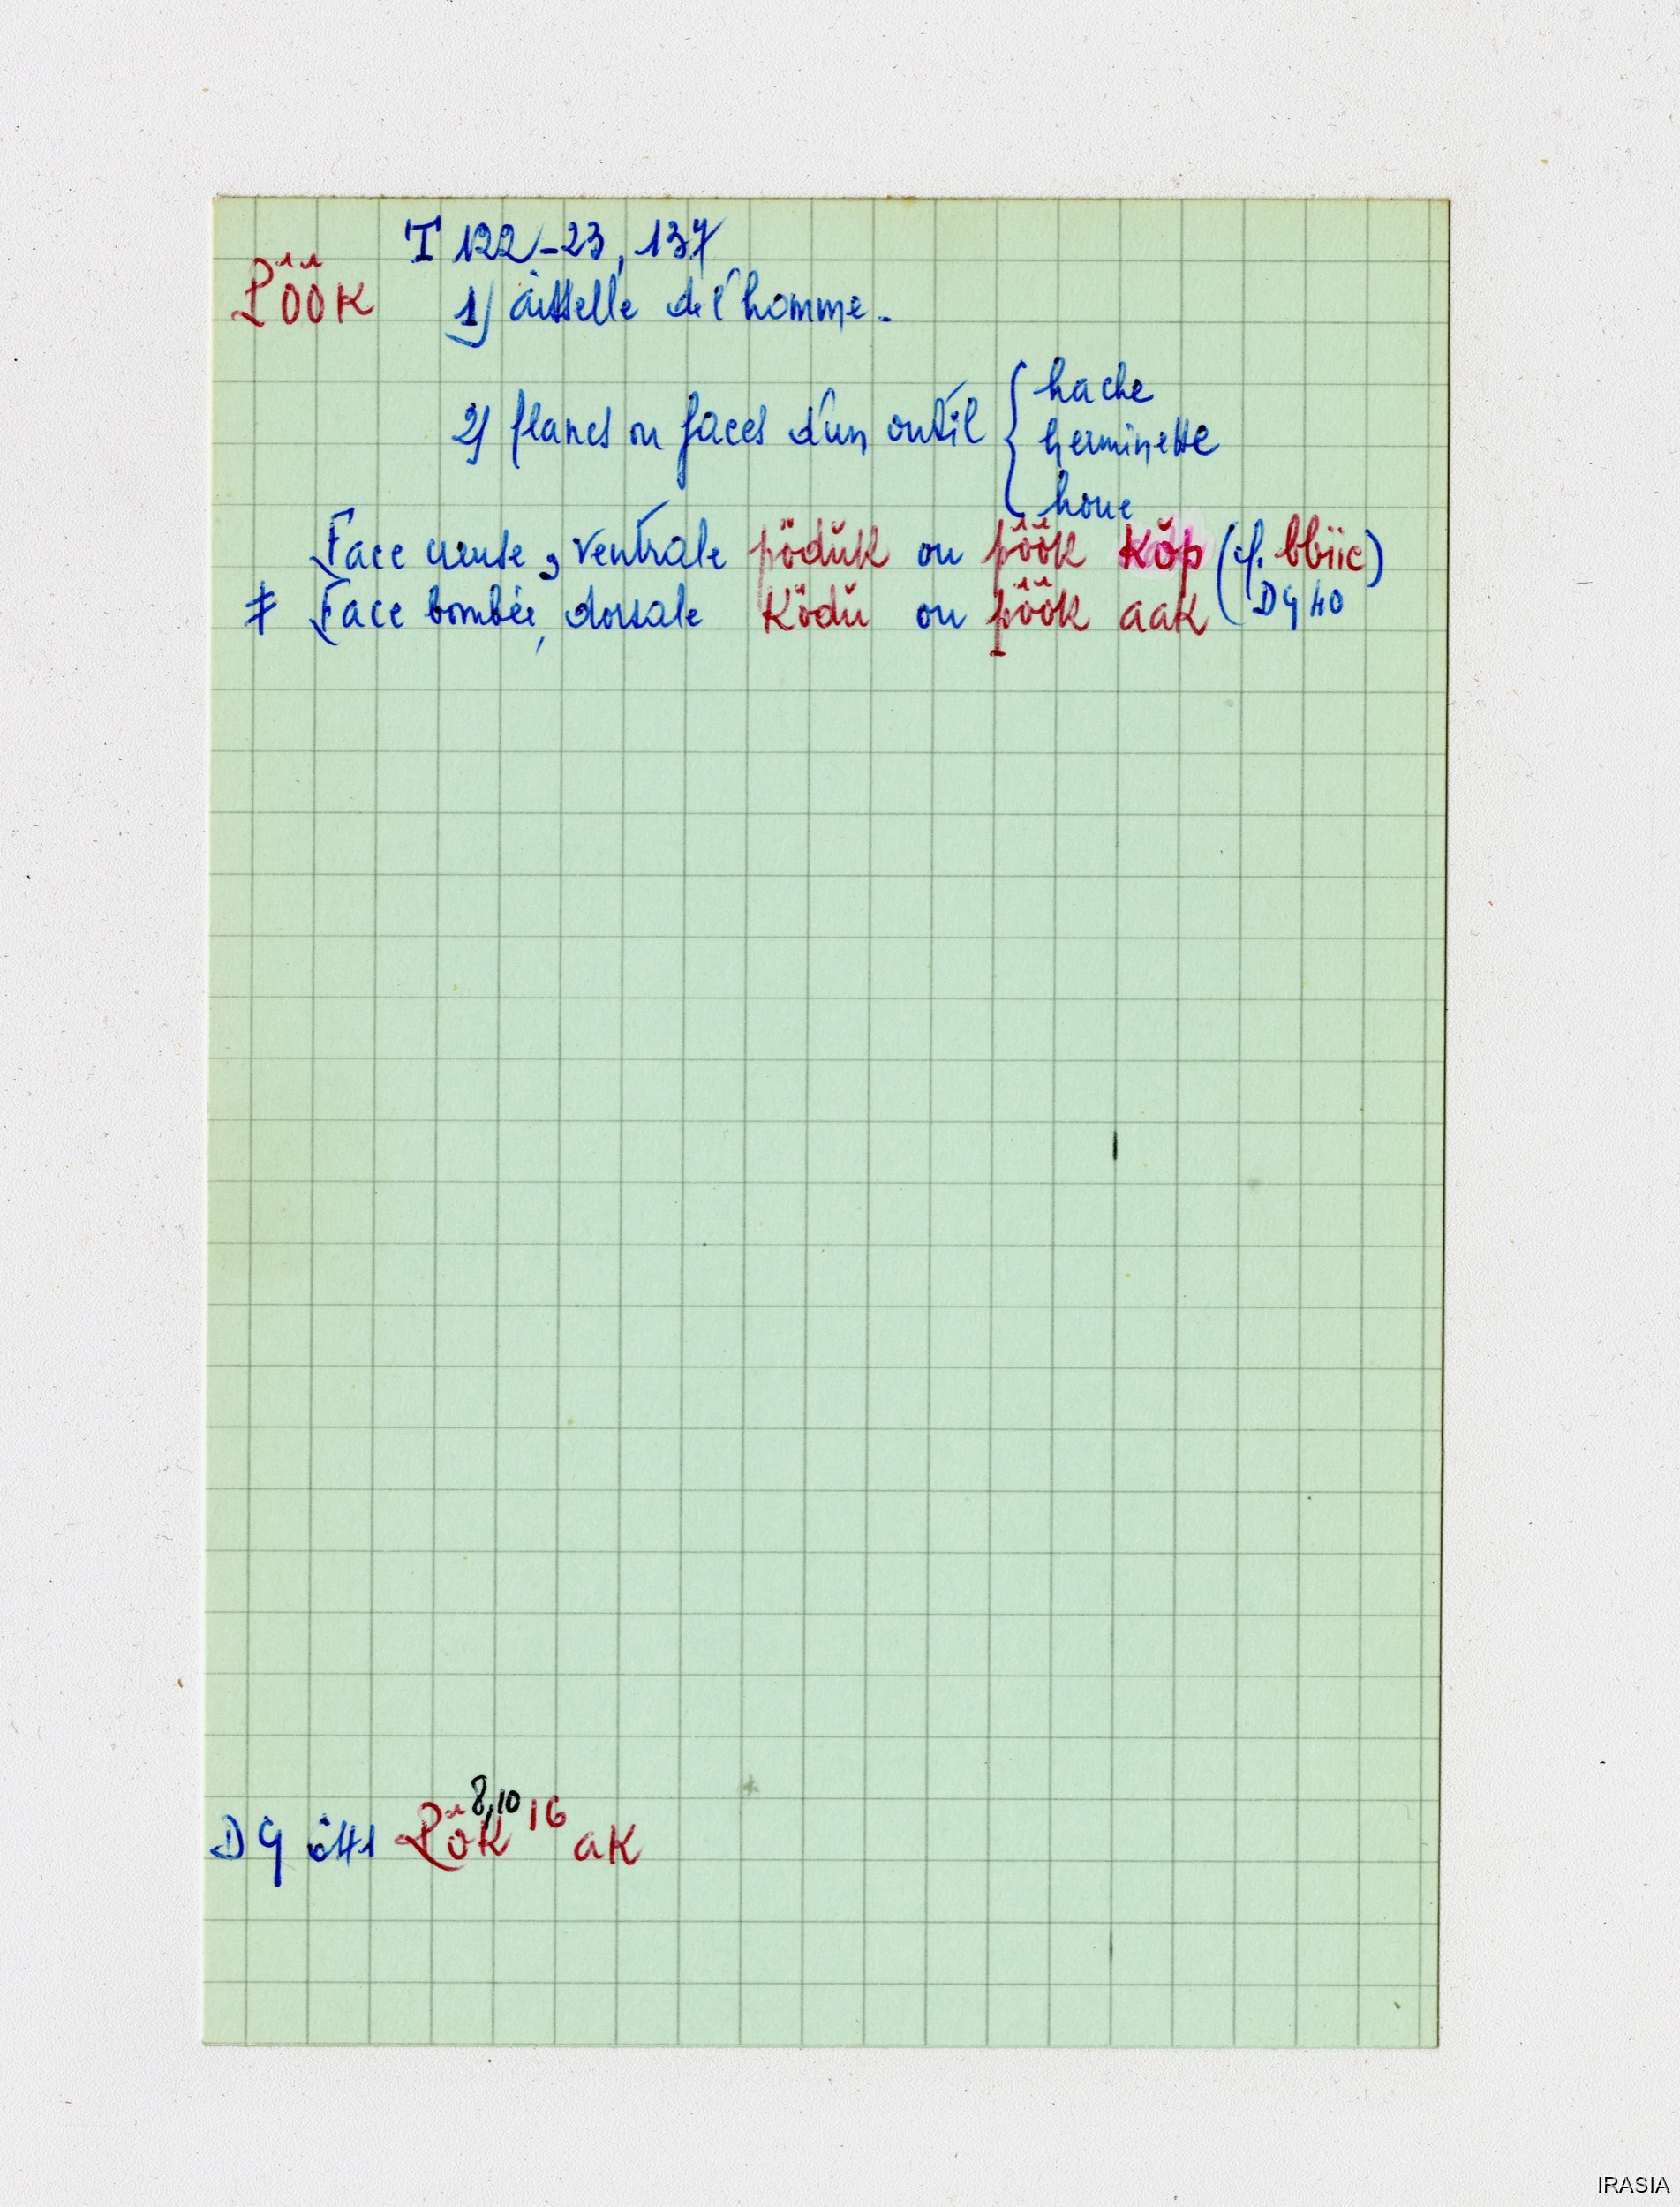 T 122-23, 137
Pôôk 1) aisselle de l'homme.
2) flancs ou faces d'un outil { hache
herminette
houe
Face creuse, ventrale pödŭk ou pôôk kŏp (cf. bbiic)
≠ Face bombée, dorsale ködŭ ou pôôk aak (D9 40
D9 Pôk 8,10 16 ak
IRASIA